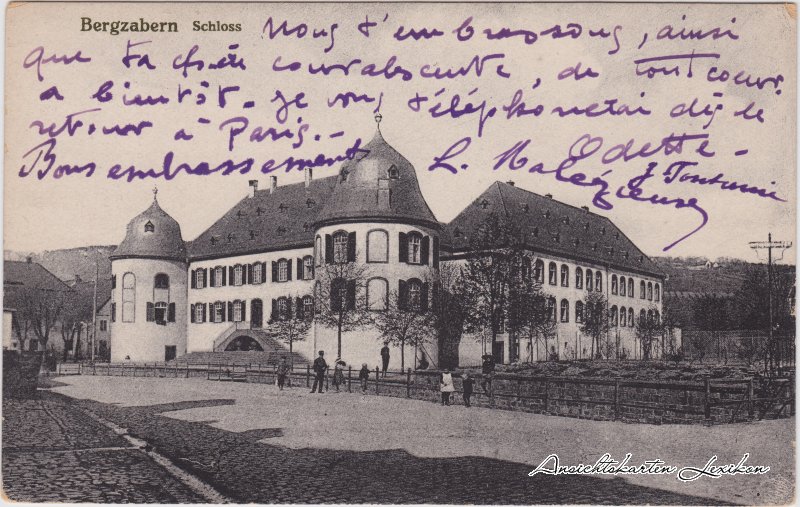 Bergzabern Schloss
Nous t'embrassons, ainsi
que ta chère convalescente, de tout coeur
a bientôt. Je vous téléphonerai dès le
retour à Paris. -
Odette -
Bons embrassements L. Malézieuse
J.
Ansichtskarten Lexikon